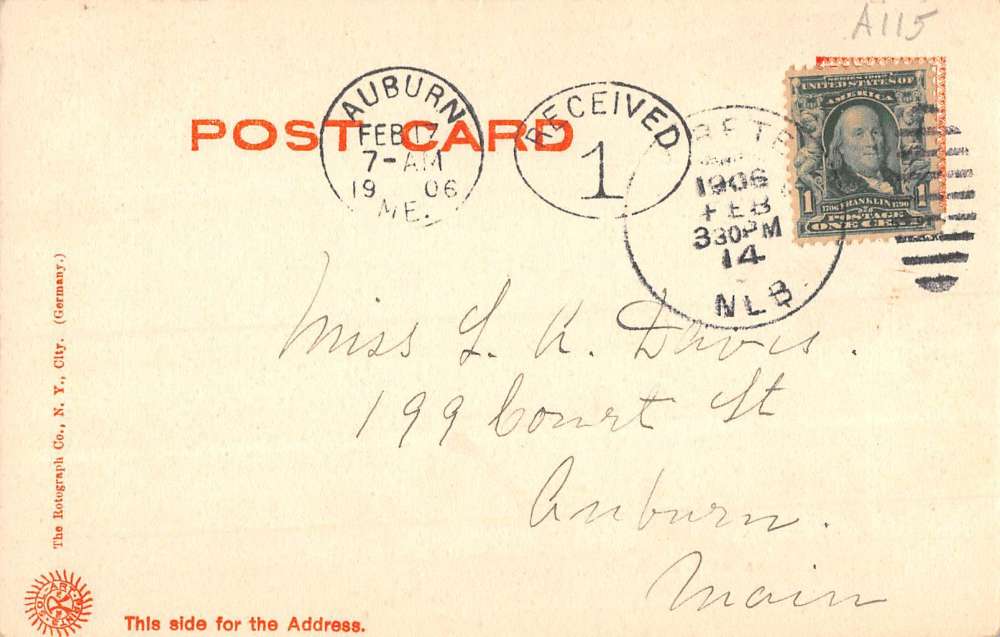 A115
POST CARD
AUBURN
FEB 17
7-AM
19 06
ME.
RECEIVED
1
1906
FEB
330PM
14
UNITED STATES OF
AMERICA
1 1
1706 FRANKLIN 1790
POSTAGE
ONE
Miss L. A. Davis.
199 Court St
Auburn.
Main
The Rotograph Co., N. Y., City. (Germany.)
SOL ART PRINTS
This side for the Address.